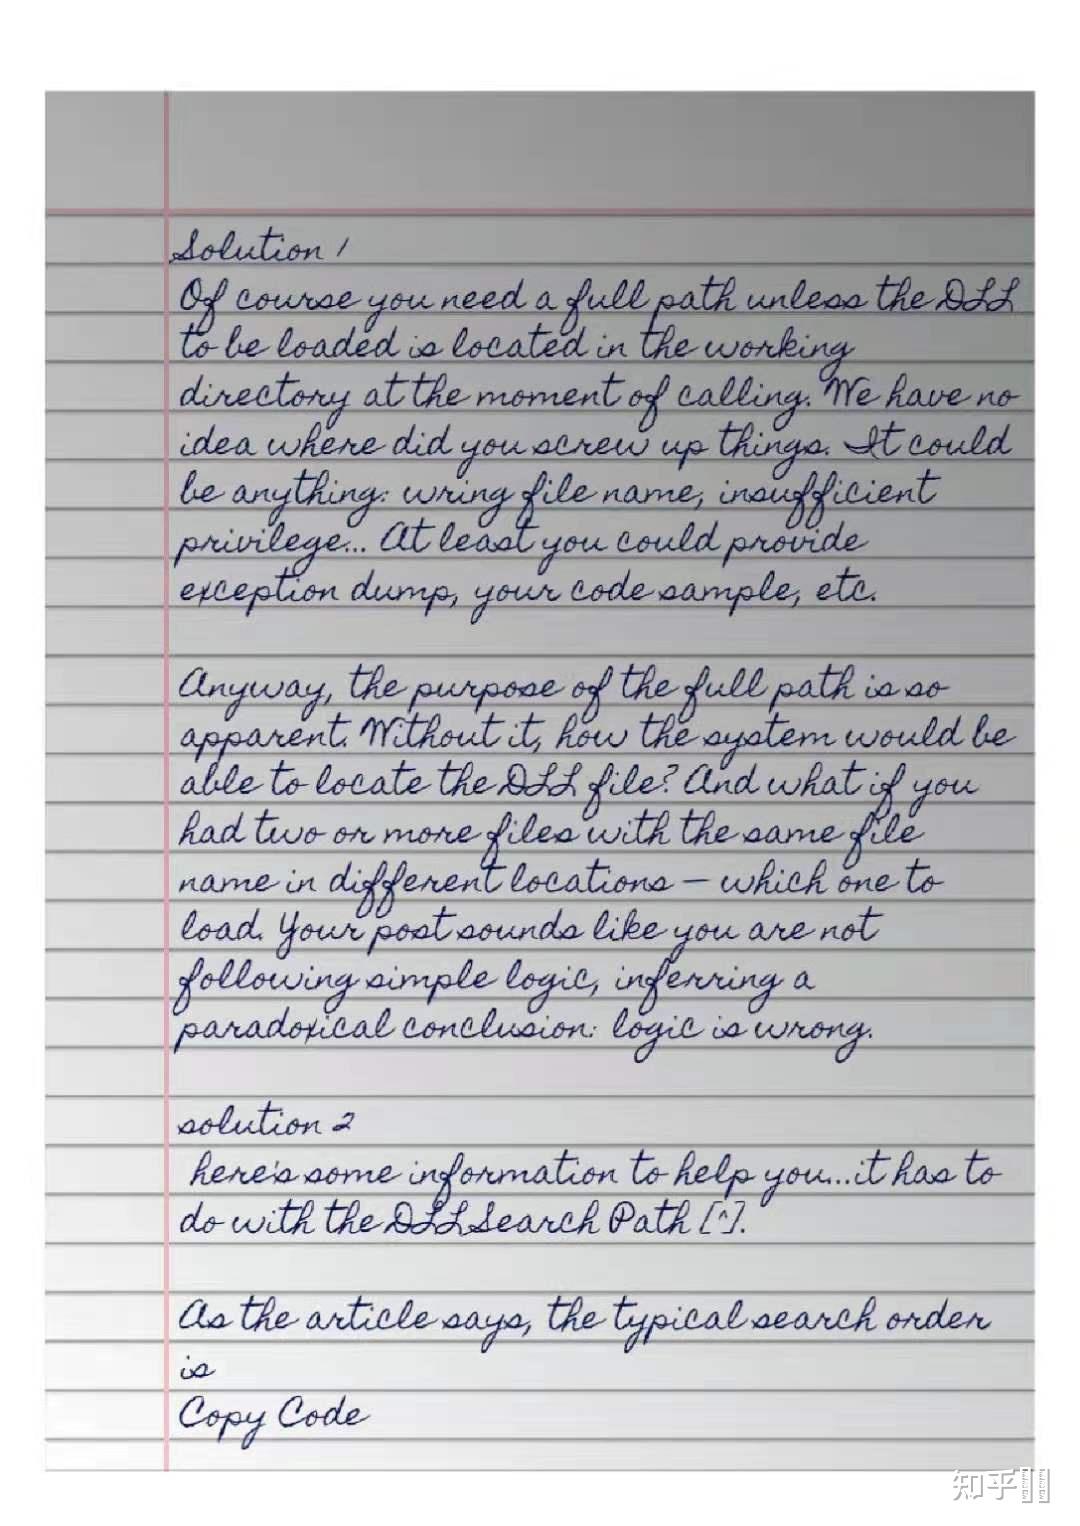 Solution 1
Of course you need a full path unless the DLL
to be loaded is located in the working
directory at the moment of calling. We have no
idea where did you screw up things. It could
be anything: wring file name, insufficient
privilege... At least you could provide
exception dump, your code sample, etc.
Anyway, the purpose of the full path is so
apparent. Without it, how the system would be
able to locate the DLL file? And what if you
had two or more files with the same file
name in different locations — which one to
load. Your post sounds like you are not
following simple logic, inferring a
paradoxical conclusion: logic is wrong.
solution 2
here's some information to help you...it has to
do with the DLL Search Path [^].
As the article says, the typical search order
is
Copy Code
知乎